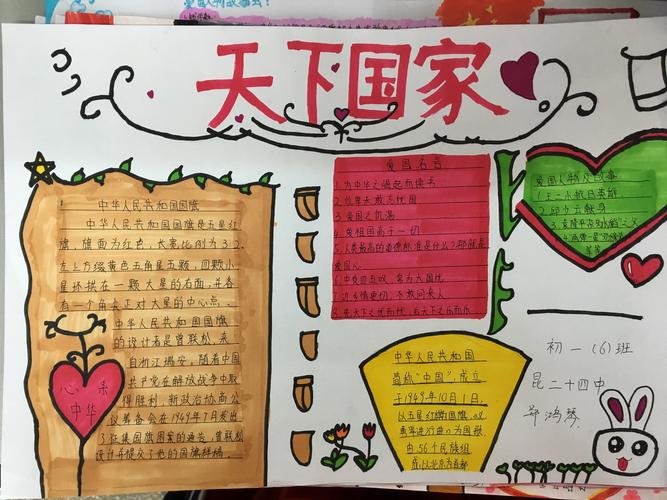 天下国家
中华人民共和国国旗
中华人民共和国国旗是五星红
旗，旗面为红色，长宽比例为3:2.
左上方缀黄色五角星五颗，四颗小
星环拱在一颗大星的右面，并各
有一个角尖正对大星的中心点.
中华人民共和国国旗
的设计者是曾联松,来
自浙江瑞安。随着中国
共产党在解放战争中取
得胜利,新政治协商会
议筹备会在1949年7月发出
了征集国旗图案的通告,曾联松
设计并提交了他的国旗样稿.
心系
中华
爱国名言
1.为中华之崛起而读书
2.位卑未敢忘忧国
3.爱国之饥渴
4.爱祖国高于一切
5.人类最高的道德标准是什么?那就是
爱国心
7.近乡情更切,不敢问来人
8.先天下之忧而忧,后天下之乐而乐
中华人民共和国
简称"中国",成立
于1949年10月1日,
以五星红旗为国旗,以
义勇军进行曲为国歌,
由56个民族组
成,以北京为首都
爱国人物及故事
1.王二小抗日英雄
初一(6)班
昆二十四中
郑鸿琴